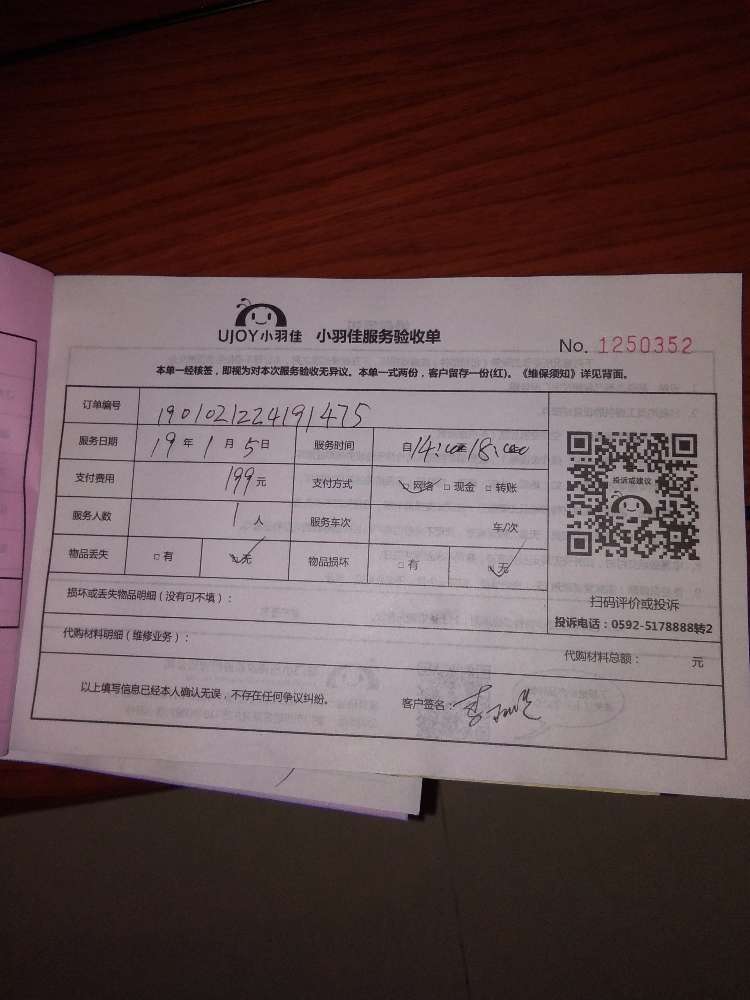 UJOY小羽佳 小羽佳服务验收单
No. 1250352
本单一经核签，即视为对本次服务验收无异议。本单一式两份，客户留存一份(红)。《维保须知》详见背面。
订单编号 1901021224191475
服务日期 19 年 1 月 5 日 服务时间 自14:00至18:00
支付费用 199元 支付方式 ☑网络 □现金 □转账
服务人数 1 人 服务车次 车/次
物品丢失 □有 ☑无 物品损坏 □有 ☑无
投诉或建议
扫码评价或投诉
投诉电话：0592-5178888转2
损坏或丢失物品明细（没有可不填）：
代购材料明细（维修业务）：
代购材料总额： 元
以上填写信息已经本人确认无误，不存在任何争议纠纷。 客户签名：李